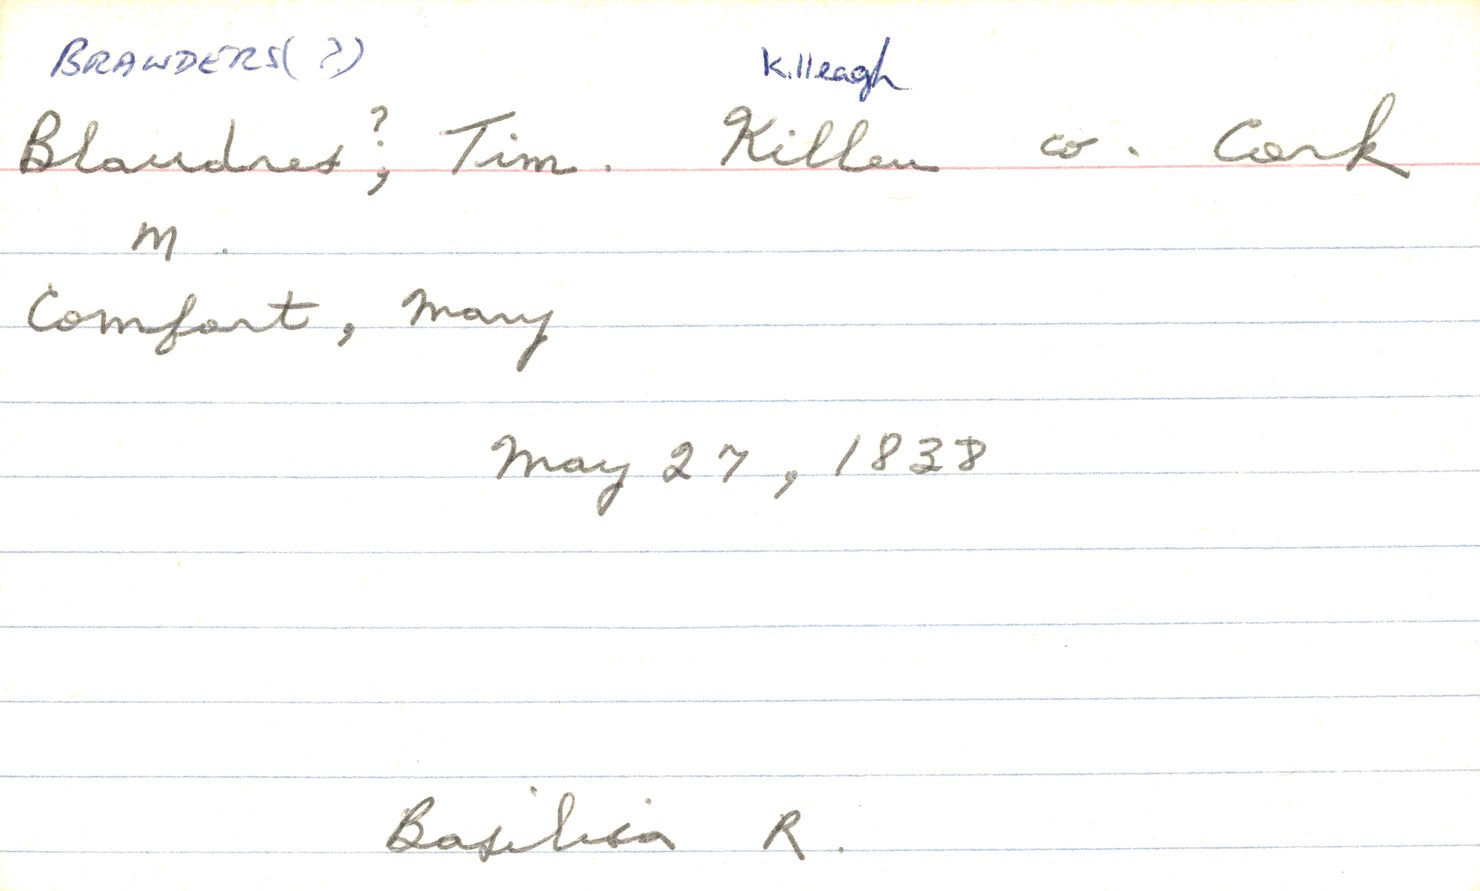 BRAWDERS(?) Killeagh
Blaudres?, Tim. Killeu co. Cork
m.
Comfort, Mary
May 27, 1838
Basilica R.